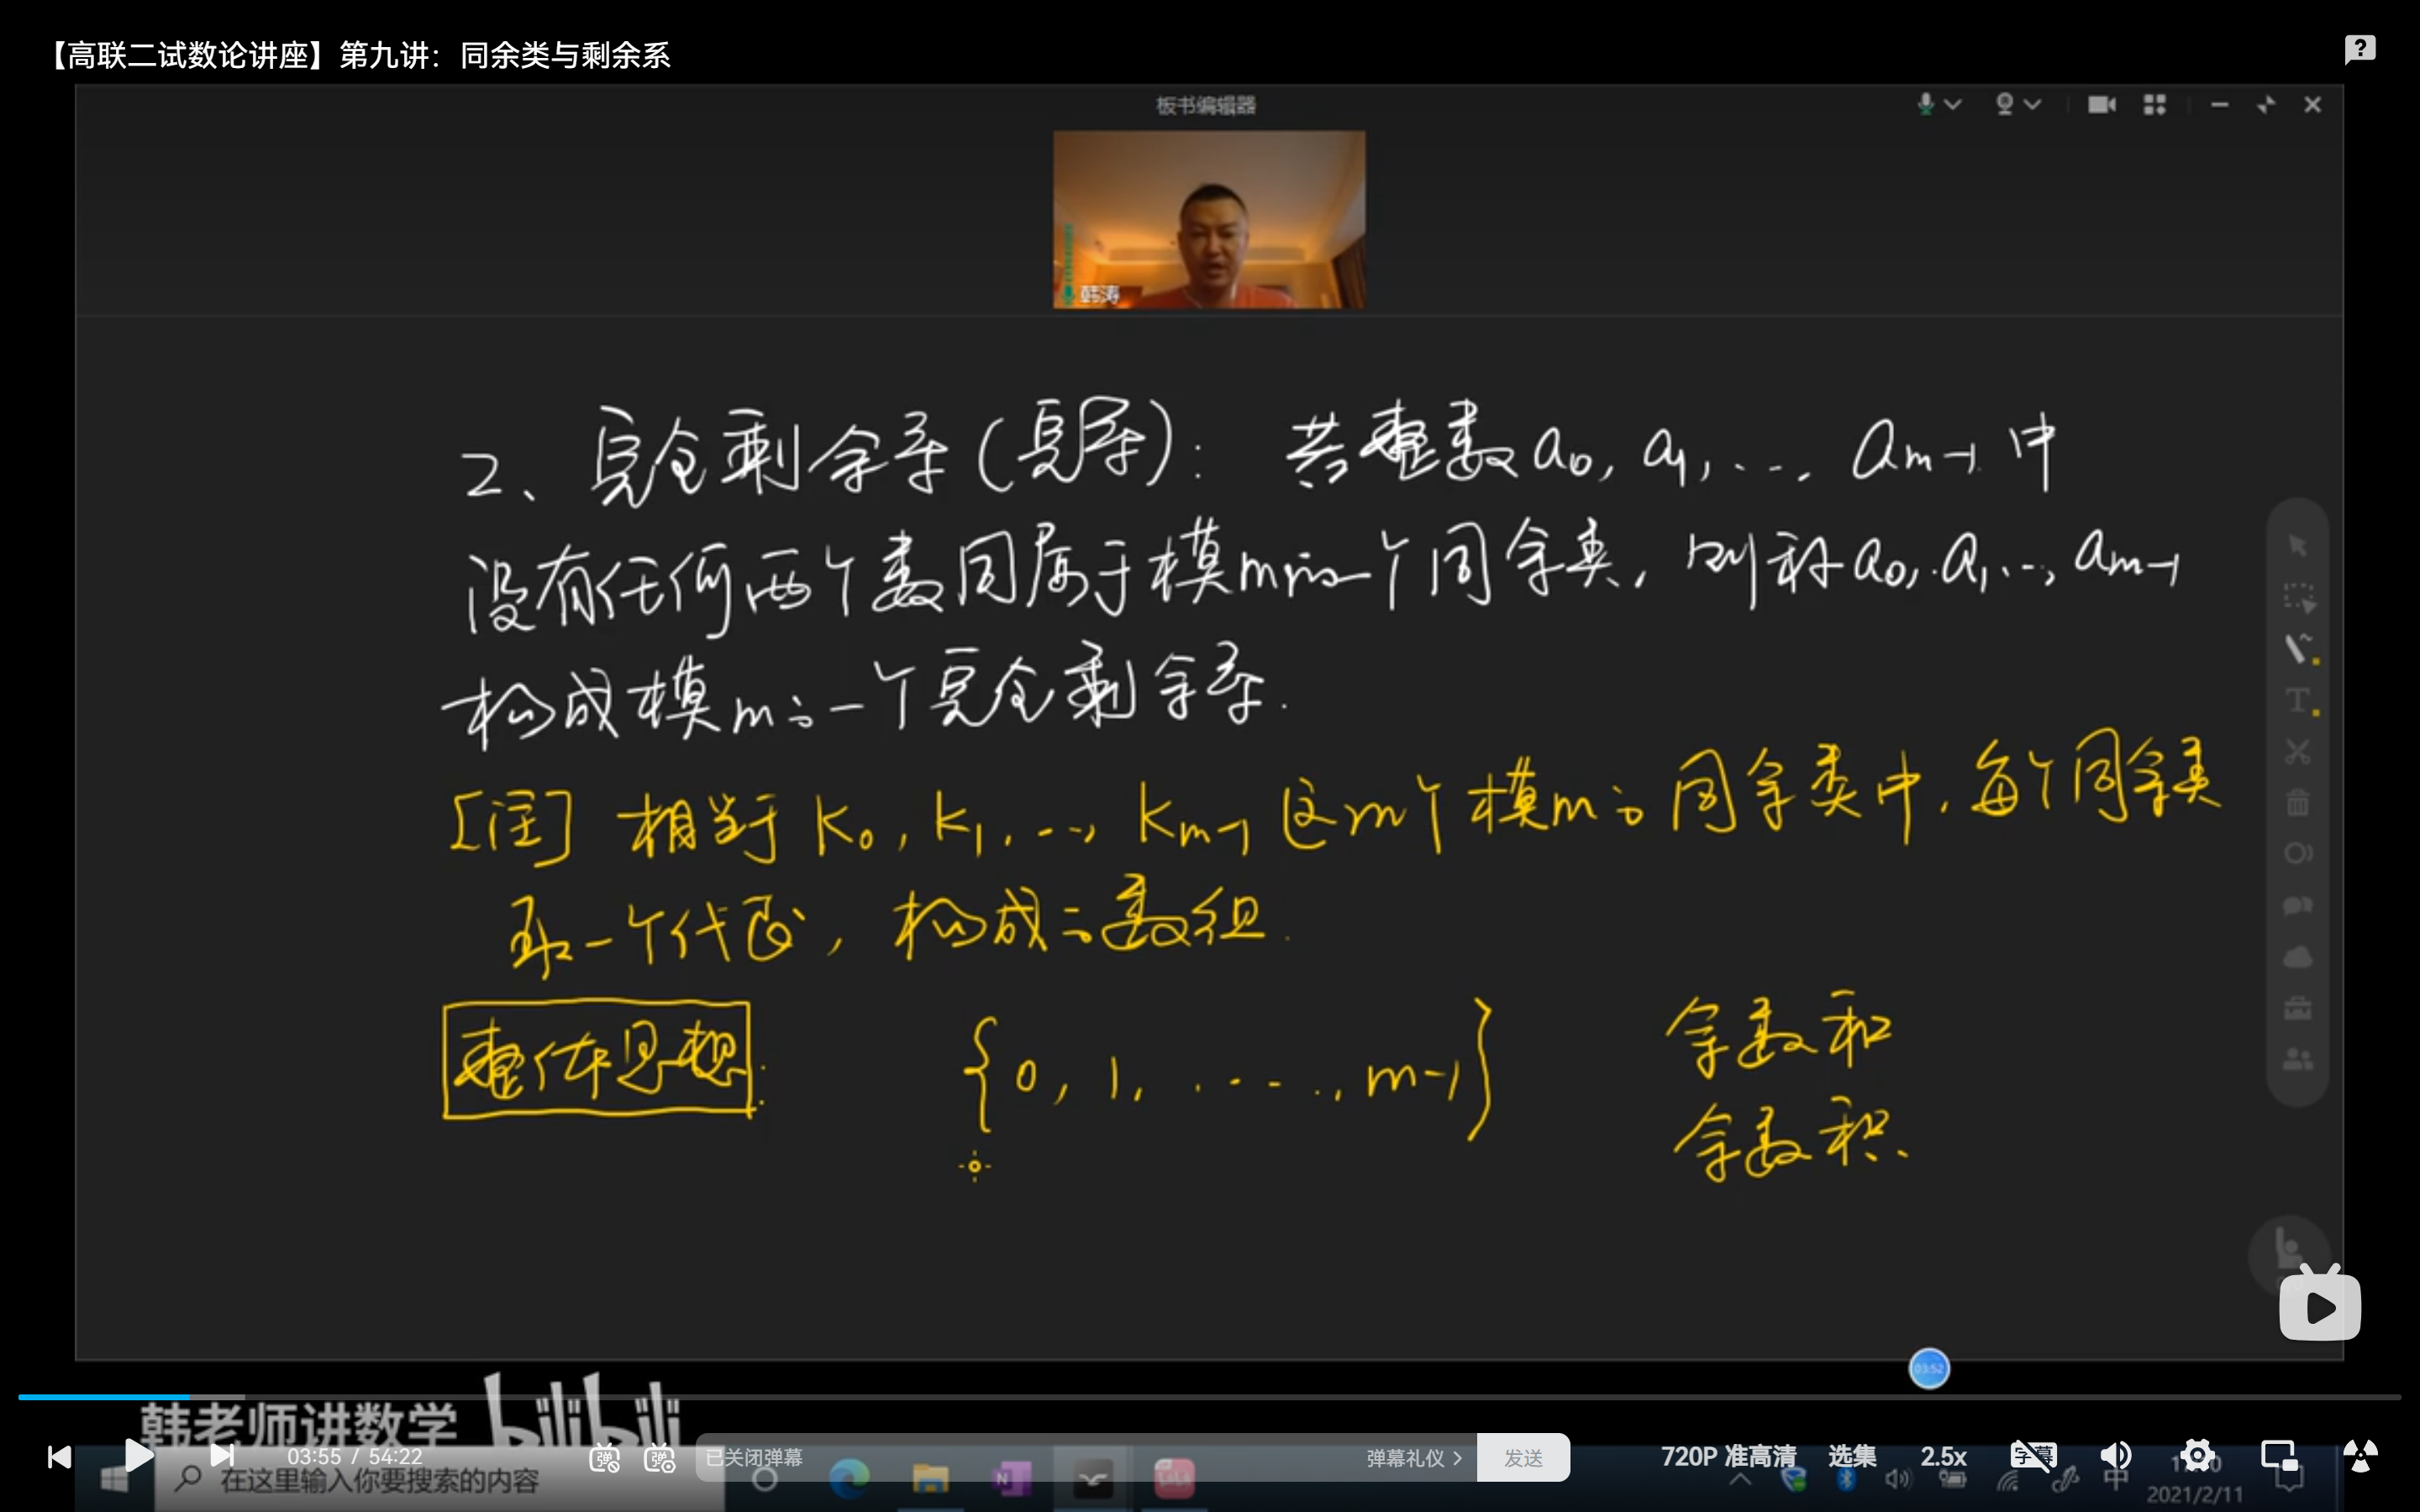 【高联二试数论讲座】第九讲：同余类与剩余系
板书编辑器
韩涛
2、完全剩余系(完系)： 若整数a0, a1, ..., am-1 中
没有任何两个数同属于模m的一个同余类, 则称a0, a1, ..., am-1
构成模m的一个完全剩余系.
[注] 相当于 K0, K1, ..., Km-1 这m个模m的同余类中, 每个同余类
取一个代表, 构成的数组.
整体思想: {0, 1, ....., m-1} 余数和
余数积.
03:52
韩老师讲数学 bilibili
03:55 / 54:22 已关闭弹幕 弹幕礼仪 发送 720P 准高清 选集 2.5x
在这里输入你要搜索的内容 中
2021/2/11